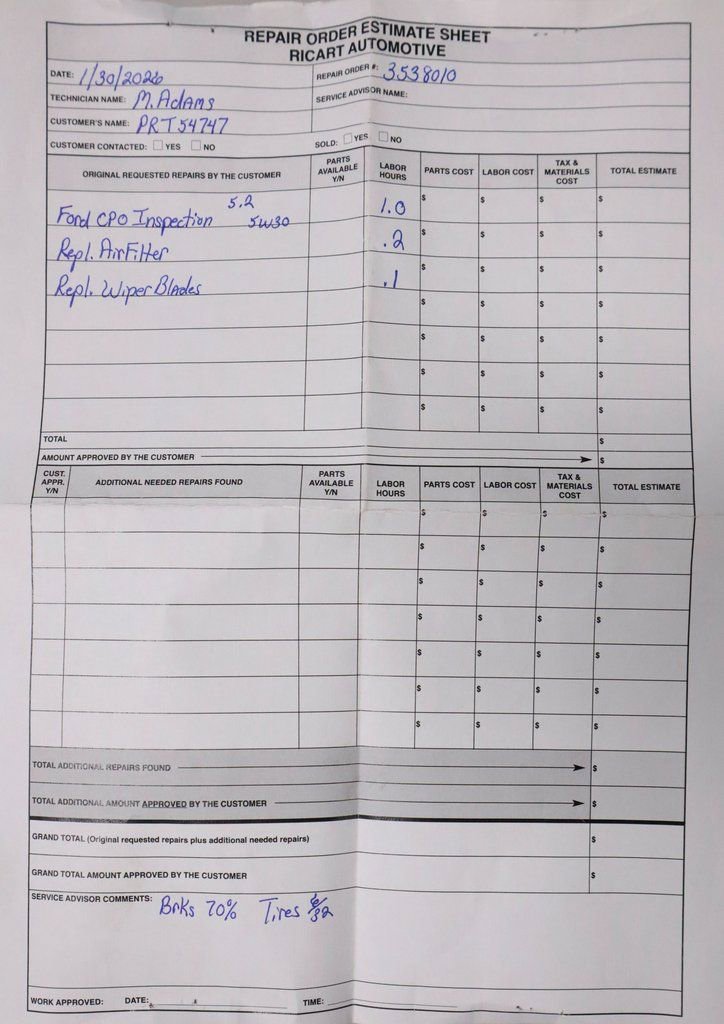 REPAIR ORDER ESTIMATE SHEET
RICART AUTOMOTIVE
DATE: 1/30/2026 REPAIR ORDER #: 3538010
TECHNICIAN NAME: M. Adams SERVICE ADVISOR NAME:
CUSTOMER'S NAME: PRT54747
CUSTOMER CONTACTED: ☐ YES ☐ NO SOLD: ☐ YES ☐ NO
ORIGINAL REQUESTED REPAIRS BY THE CUSTOMER PARTS AVAILABLE Y/N LABOR HOURS PARTS COST LABOR COST TAX & MATERIALS COST TOTAL ESTIMATE
5.2
Ford CPO Inspection 5W30 1.0 $ $ $ $
Repl. Air Filter .2 $ $ $ $
Repl. Wiper Blades .1 $ $ $ $
$ $ $ $
$ $ $ $
$ $ $ $
$ $ $ $
TOTAL $
AMOUNT APPROVED BY THE CUSTOMER $
CUST. APPR. Y/N ADDITIONAL NEEDED REPAIRS FOUND PARTS AVAILABLE Y/N LABOR HOURS PARTS COST LABOR COST TAX & MATERIALS COST TOTAL ESTIMATE
$ $ $ $
$ $ $ $
$ $ $ $
$ $ $ $
$ $ $ $
$ $ $ $
$ $ $ $
TOTAL ADDITIONAL REPAIRS FOUND $
TOTAL ADDITIONAL AMOUNT APPROVED BY THE CUSTOMER $
GRAND TOTAL (Original requested repairs plus additional needed repairs) $
GRAND TOTAL AMOUNT APPROVED BY THE CUSTOMER $
SERVICE ADVISOR COMMENTS: Brks 70% Tires 6/32
WORK APPROVED: DATE: TIME: